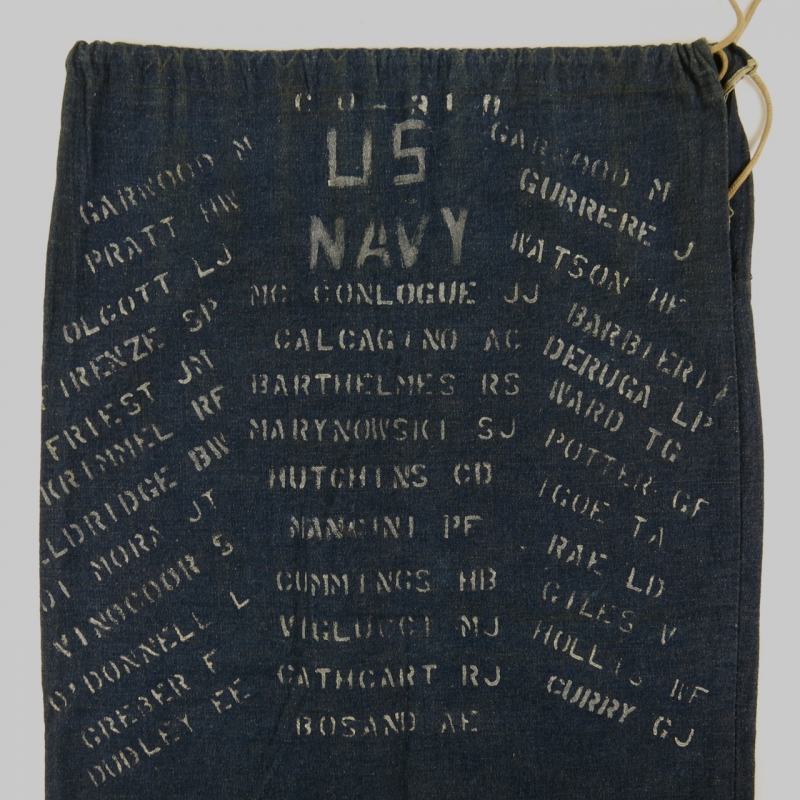 US
NAVY
GARWOOD M
PRATT HW
OLCOTT LJ
FIRENZE SP
FRIEST JM
KRIMMEL RF
LLDRIDGE BW
MORN JT
VINOCOOR S
O'DONNELL L
GREBER F
DUDLEY EE
MC CONLOGUE JJ
CALCAGINO AC
BARTHELMES RS
MARYNOWSKI SJ
HUTCHINS CD
MANCINI PF
CUMMINGS HB
VIGLUCCI MJ
CATHCART RJ
BOSAND AE
GARWOOD M
GURRERE J
WATSON HF
BARBIERI
DERUGA LP
WARD TG
POTTER GF
IGOE TA
RAE LD
GILES V
HOLLIS
CURRY GJ